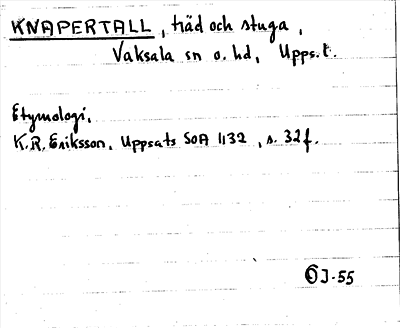 KNAPERTALL, träd och stuga,
Vaksala sn o. hd, Upps. l.
Etymologi.
K.R. Eriksson, Uppsats SOA 1132, s. 32f.
ÖJ-55